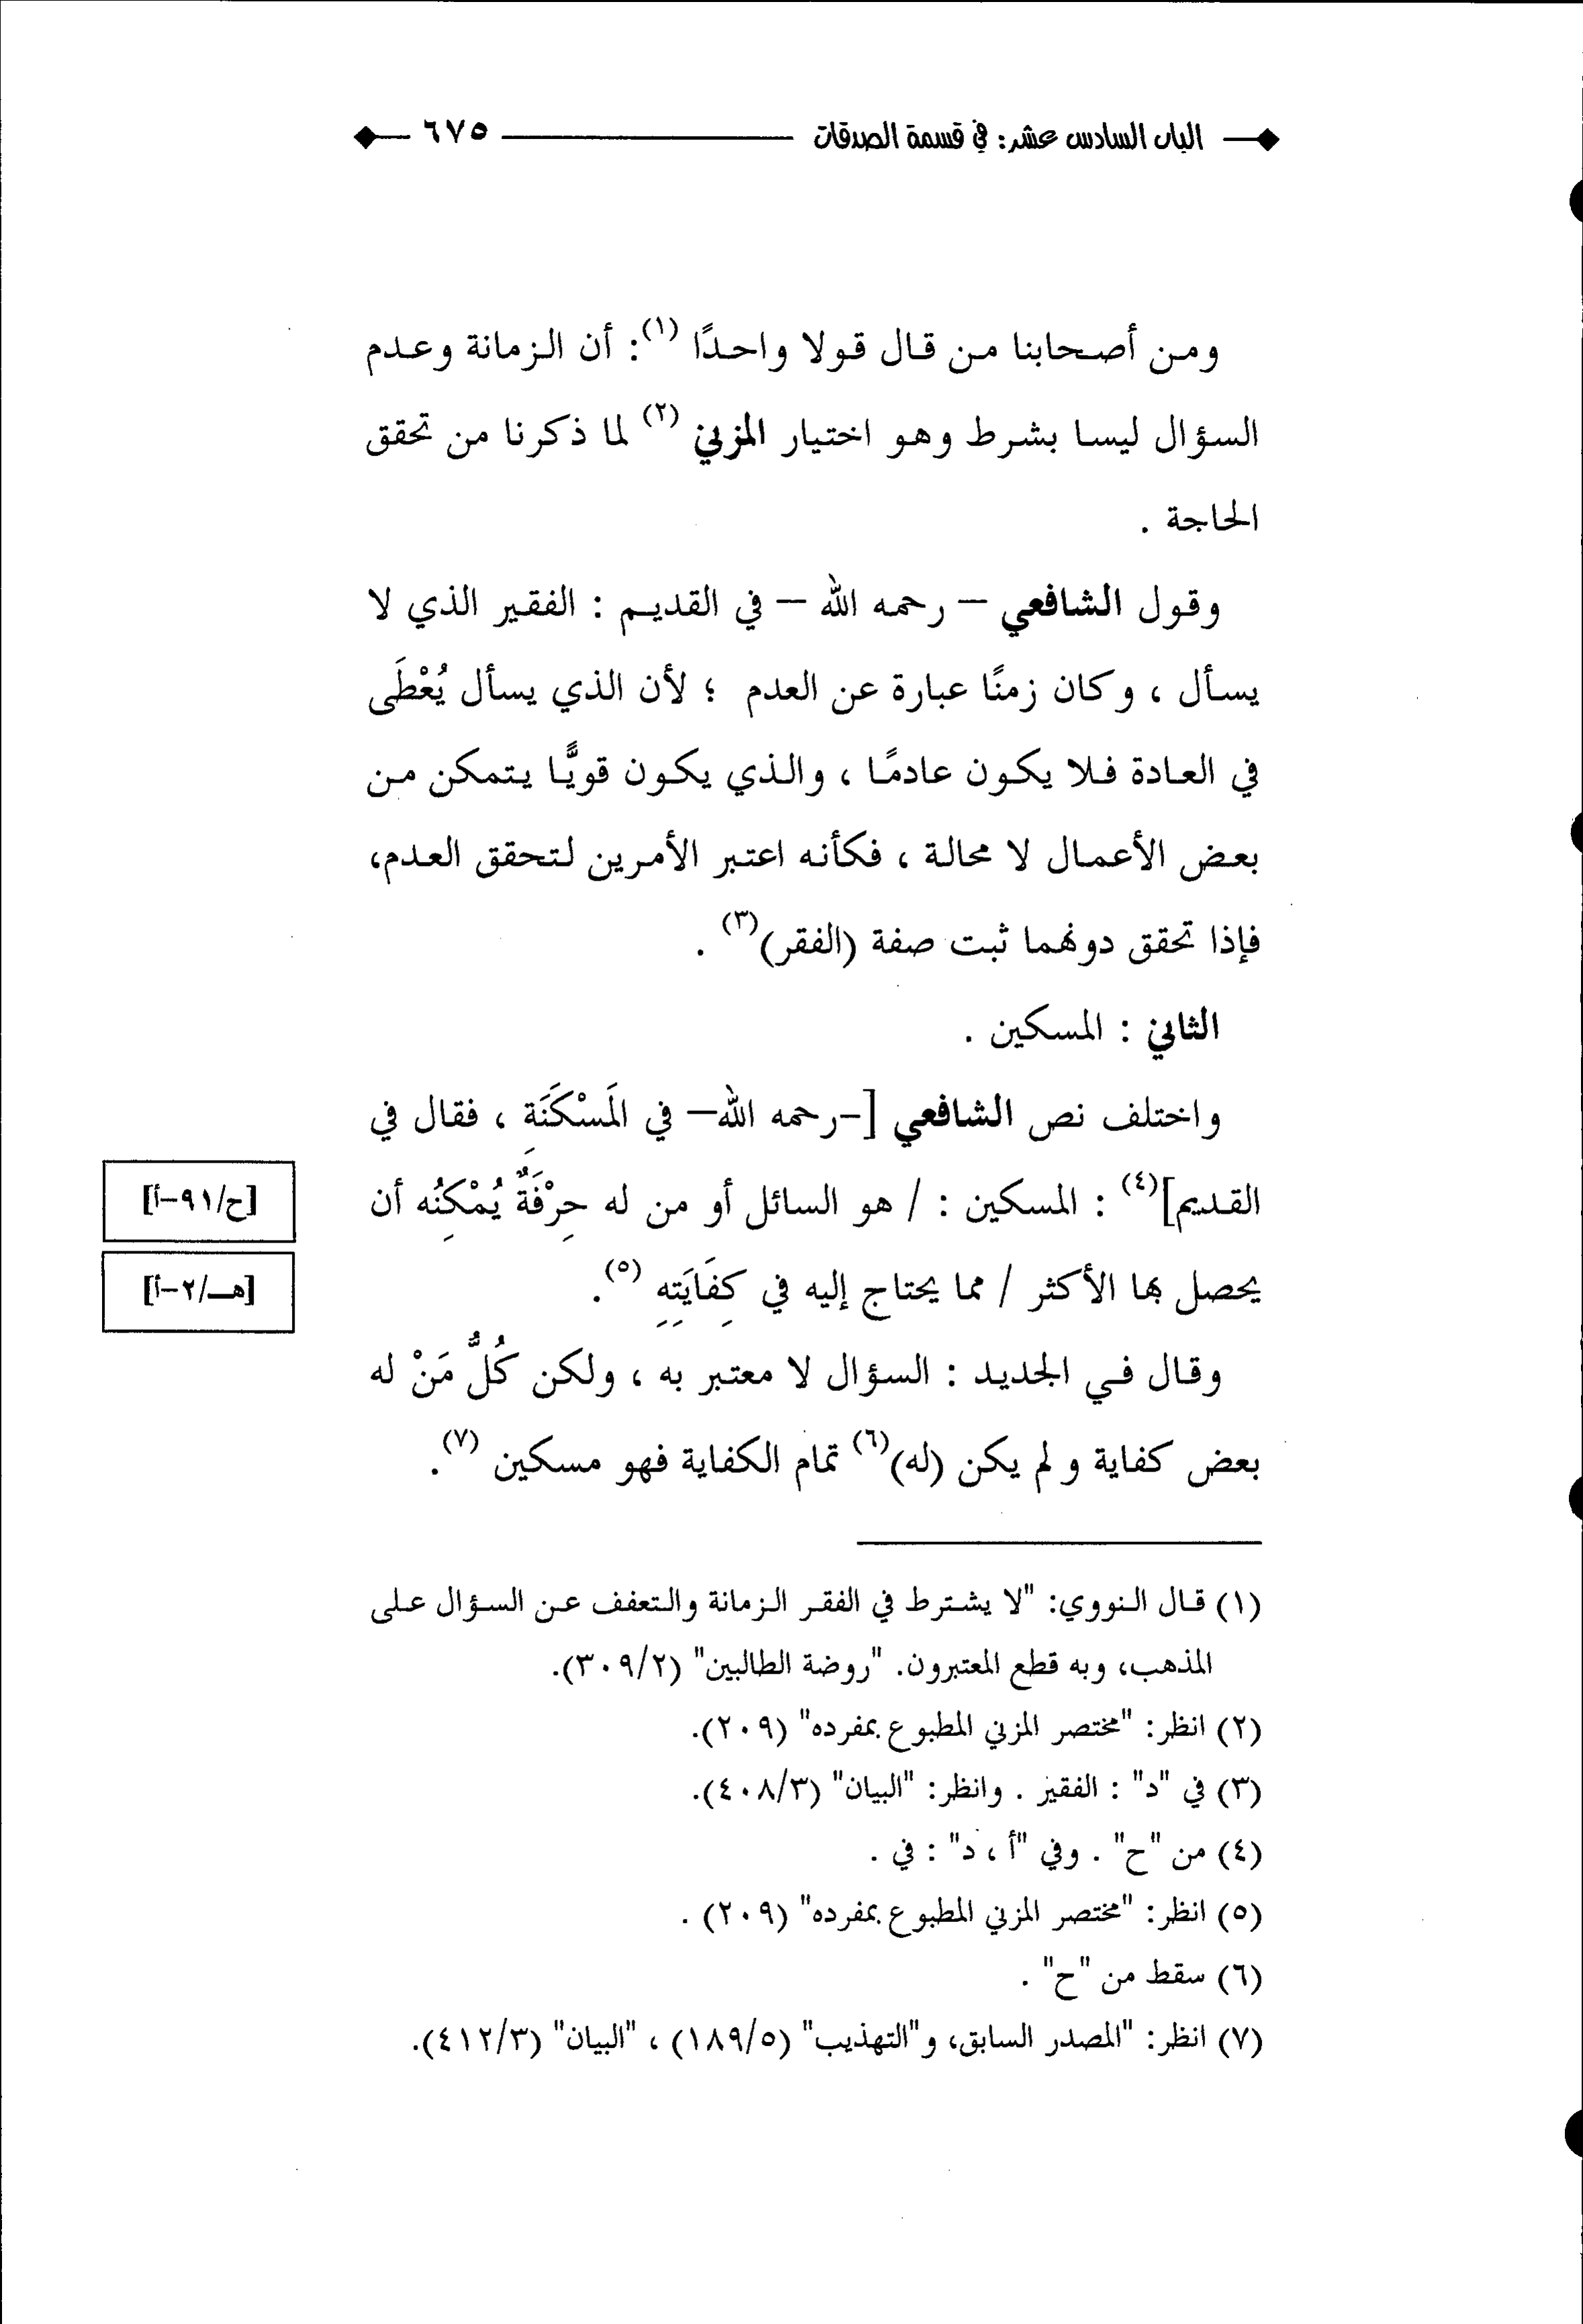 الباب السادس عشر: في قسمة الصدقات ٦٧٥
ومن أصحابنا من قال قولا واحدًا (١): أن الزمانة وعدم
السؤال ليسا بشرط وهو اختيار المزني (٢) لما ذكرنا من تحقق
الحاجة .
وقول الشافعي – رحمه الله – في القديم : الفقير الذي لا
يسأل ، وكان زمنًا عبارة عن العدم ؛ لأن الذي يسأل يُعْطَى
في العادة فلا يكون عادمًا ، والذي يكون قويًّا يتمكن من
بعض الأعمال لا محالة ، فكأنه اعتبر الأمرين لتحقق العدم،
فإذا تحقق دونهما ثبت صفة (الفقر)(٣) .
الثاني : المسكين .
واختلف نص الشافعي [–رحمه الله– في المَسْكَنَةِ ، فقال في
القديم](٤) : المسكين : / هو السائل أو من له حِرْفَةٌ يُمْكِنُه أن
[ح/٩١–أ]
يحصل بها الأكثر / مما يحتاج إليه في كِفَايَتِهِ (٥).
[هـ/٢–أ]
وقال في الجديد : السؤال لا معتبر به ، ولكن كُلُّ مَنْ له
بعض كفاية و لم يكن (له)(٦) تمام الكفاية فهو مسكين (٧).
(١) قال النووي: "لا يشترط في الفقر الزمانة والتعفف عن السؤال على
المذهب، وبه قطع المعتبرون. "روضة الطالبين" (٣٠٩/٢).
(٢) انظر: "مختصر المزني المطبوع بمفرده" (٢٠٩).
(٣) في "د" : الفقيز . وانظر: "البيان" (٤٠٨/٣).
(٤) من "ح" . وفي "أ ، د" : في .
(٥) انظر: "مختصر المزني المطبوع بمفرده" (٢٠٩) .
(٦) سقط من "ح" .
(٧) انظر: "المصدر السابق، و"التهذيب" (١٨٩/٥) ، "البيان" (٤١٢/٣).